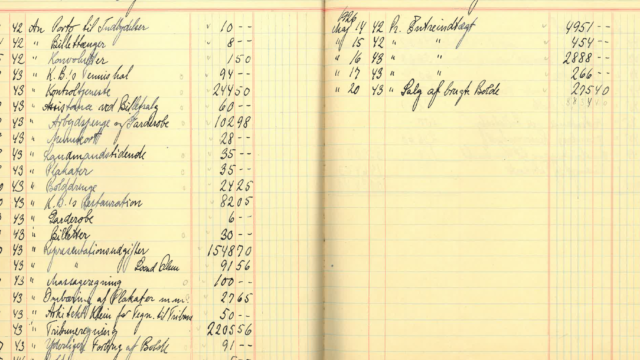 42 An Porto til Indbydelser " 10 --
42 " Billettunger " 8 --
42 " Konvolutter " 1 50
43 " K.B.'s Tennishal " 94 --
43 " Kontrollørerne " 244 50
43 " Assistance ved Billetsalg " 60 --
43 " Arbejdspenge og Garderobe " 102 98
43 " " 28 --
43 " Landmandstidende " 35 --
43 " Plakater " 35 --
43 " Bolddrenge " 24 25
43 " K.B.'s Restauration " 82 05
43 " Garderobe " 6 --
43 " Billetter " 30 --
43 " Repræsentationsudgifter " 1548 70
43 " " " 91 56
43 " Massageregning " 100 --
43 " Ombæring af Plakater m.m. " 27 65
43 " Arkitekt Klein for Tegn. til Tribune " 50 --
43 " Tribuneregning " 2205 56
43 " Yderligere Forbrug af Bolde " 91 --
Maj 14 42 Pr. Entreindtægt " 4951 --
" 15 42 " " " 454 --
" 16 43 " " " 2888 --
" 17 43 " " " 266 --
" 20 43 " Salg af brugte Bolde " 275 40